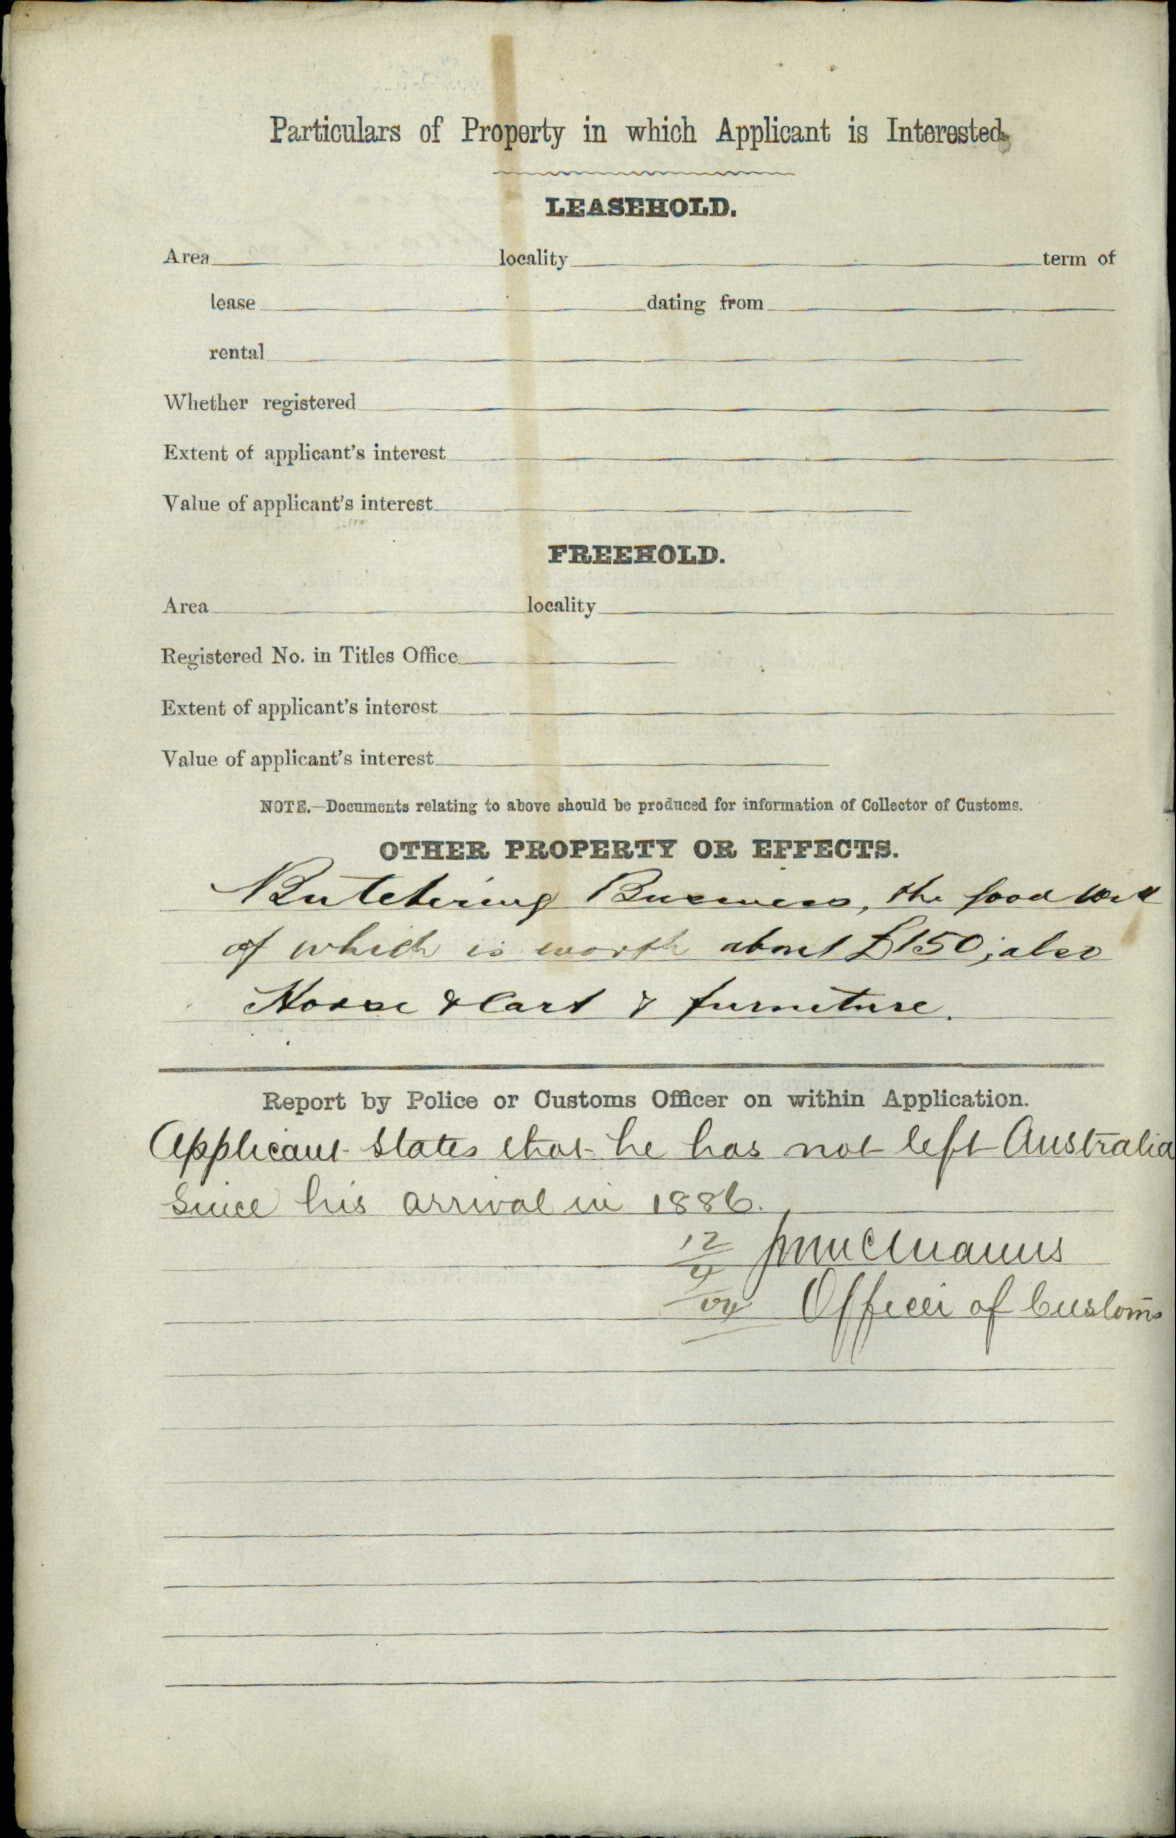 Particulars of Property in which Applicant is Interested.
LEASEHOLD.
Area locality term of
lease dating from
rental
Whether registered
Extent of applicant's interest
Value of applicant's interest
FREEHOLD.
Area locality
Registered No. in Titles Office
Extent of applicant's interest
Value of applicant's interest
NOTE.—Documents relating to above should be produced for information of Collector of Customs.
OTHER PROPERTY OR EFFECTS.
Butchering Business, the good will
of which is worth about £150; also
Horse & Cart & furniture.
Report by Police or Customs Officer on within Application.
Applicant states that he has not left Australia
since his arrival in 1886.
12
9
04
Officer of Customs